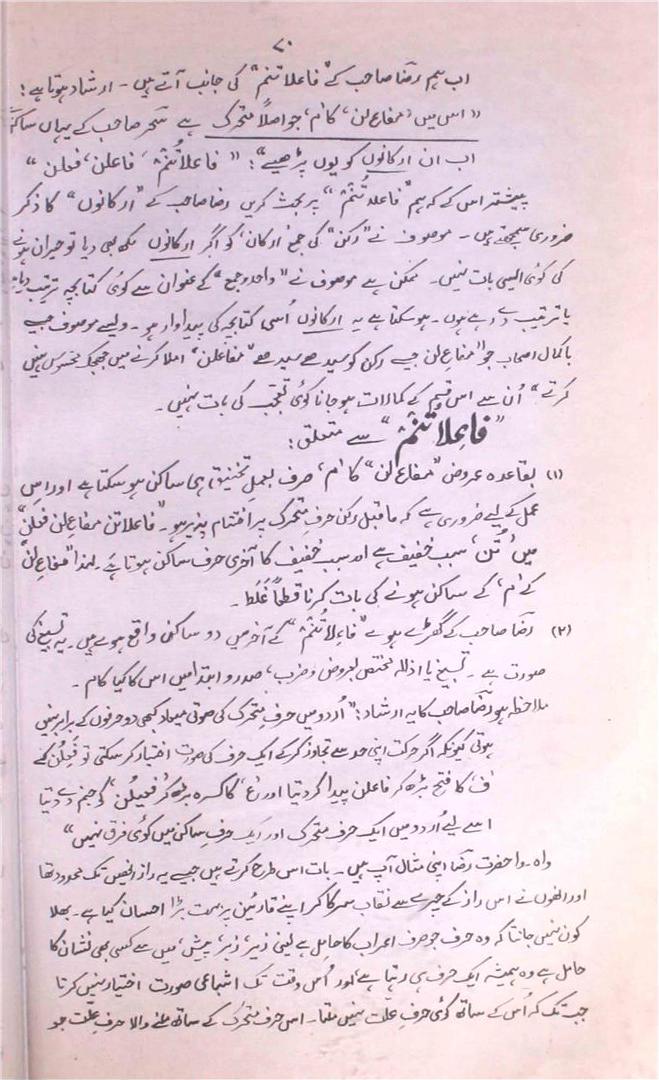 ۷۰
اب ہم رضا صاحب کے "فاعلاتنم" کی جانب آتے ہیں۔ ارشاد ہوتا ہے:
"اس میں 'مفاع لن' کا 'م' جو اصلاً متحرک ہے سحر صاحب کے یہاں ساکن
اب ان ارکانوں کو یوں پڑھیے": "فاعلاتُنْمْ، فاعلن، فعلن"
پیشتر اس کے کہ ہم "فاعلاتُنْمْ" پر بحث کریں رضا صاحب کے "ارکانوں" کا ذکر
ضروری سمجھتے ہیں۔ موصوف نے "رکن" کی جمع 'ارکان' کو اگر ارکانوں لکھ بھی دیا تو حیران ہونے
کی کوئی ایسی بات نہیں۔ ممکن ہے موصوف نے "واحد و جمع" کے عنوان سے کوئی کتابچہ ترتیب دیا ہو
یا ترتیب دے رہے ہوں۔ ہو سکتا ہے یہ ارکانوں اُسی کتابچہ کی پیداوار ہو۔ ویسے موصوف جیسے
باکمال اصحاب جو "مفاع لن جیسے رکن کو سیدھے سیدھے "مفاعلن" املا کرنے میں جھجک محسوس نہیں
کرتے" اُن سے اس قسم کے کمالات ہو جانا کوئی تعجب کی بات نہیں۔
"فاعِلاتُنْمْ" سے متعلق:
(۱) بقاعدہ عروض "مفاع لن" کا 'م' صرف بعملِ تخنیق ہی ساکن ہو سکتا ہے اور اس
عمل کے لیے ضروری ہے کہ ماقبل رکن حرفِ متحرک پر اختتام پذیر ہو۔ "فاعلاتن مفاع لن فعلن"
میں 'تُن' سببِ خفیف ہے اور سببِ خفیف کا آخری حرف ساکن ہوتا ہے۔ لہٰذا "مفاع لن"
کے 'م' کے ساکن ہونے کی بات کرنا قطعاً غلط۔
(۲) رضا صاحب کے گھڑے ہوے "فاعلاتُنْمْ" کے آخر میں دو ساکن واقع ہوے ہیں۔ یہ تسبیغ کی
صورت ہے۔ تسبیغ یا اذالہ مختص بعروض و ضرب، صدر و ابتدا میں اس کا کیا کام۔
ملاحظہ ہو رضا صاحب کا یہ ارشاد: "اُردو میں حرفِ متحرک کی صوتی میعاد کبھی دو حرفوں کے برابر نہیں
ہوتی کیونکہ اگر حرکت اپنی حد سے تجاوز کر کے ایک حرف کی صورت اختیار کر سکتی تو فَعِلُن کے
'ف' کا فتح بڑھ کر فاعلن پیدا کر دیتا اور 'ع' کا کسرہ بڑھ کر فعیلن' کو جنم دے دیتا
اسے لیے اُردو میں ایک حرف متحرک اور ایک حرفِ ساکن میں کوئی فرق نہیں"
واہ۔ وا حضرت رضا اپنی مثال آپ ہیں۔ بات اس طرح کرتے ہیں جیسے یہ راز انھیں تک محدود تھا
اور انھوں نے اس راز کے چہرے سے نقاب سرکا کر اپنے قارئین پر بہت بڑا احسان کیا ہے۔ بھلا
کون نہیں جانتا کہ وہ حرف جو صرف اعراب کا حامل ہے یعنی زیر، زبر، پیش، میں سے کسی بھی نشان کا
حامل ہے وہ ہمیشہ ایک حرف ہی رہتا ہے اور اُس وقت تک اشباعی صورت اختیار نہیں کرتا
جب تک کہ اُس کے ساتھ کوئی حرفِ علّت نہیں ملتا۔ اس حرفِ متحرک کے ساتھ ملنے والا حرفِ علّت جو